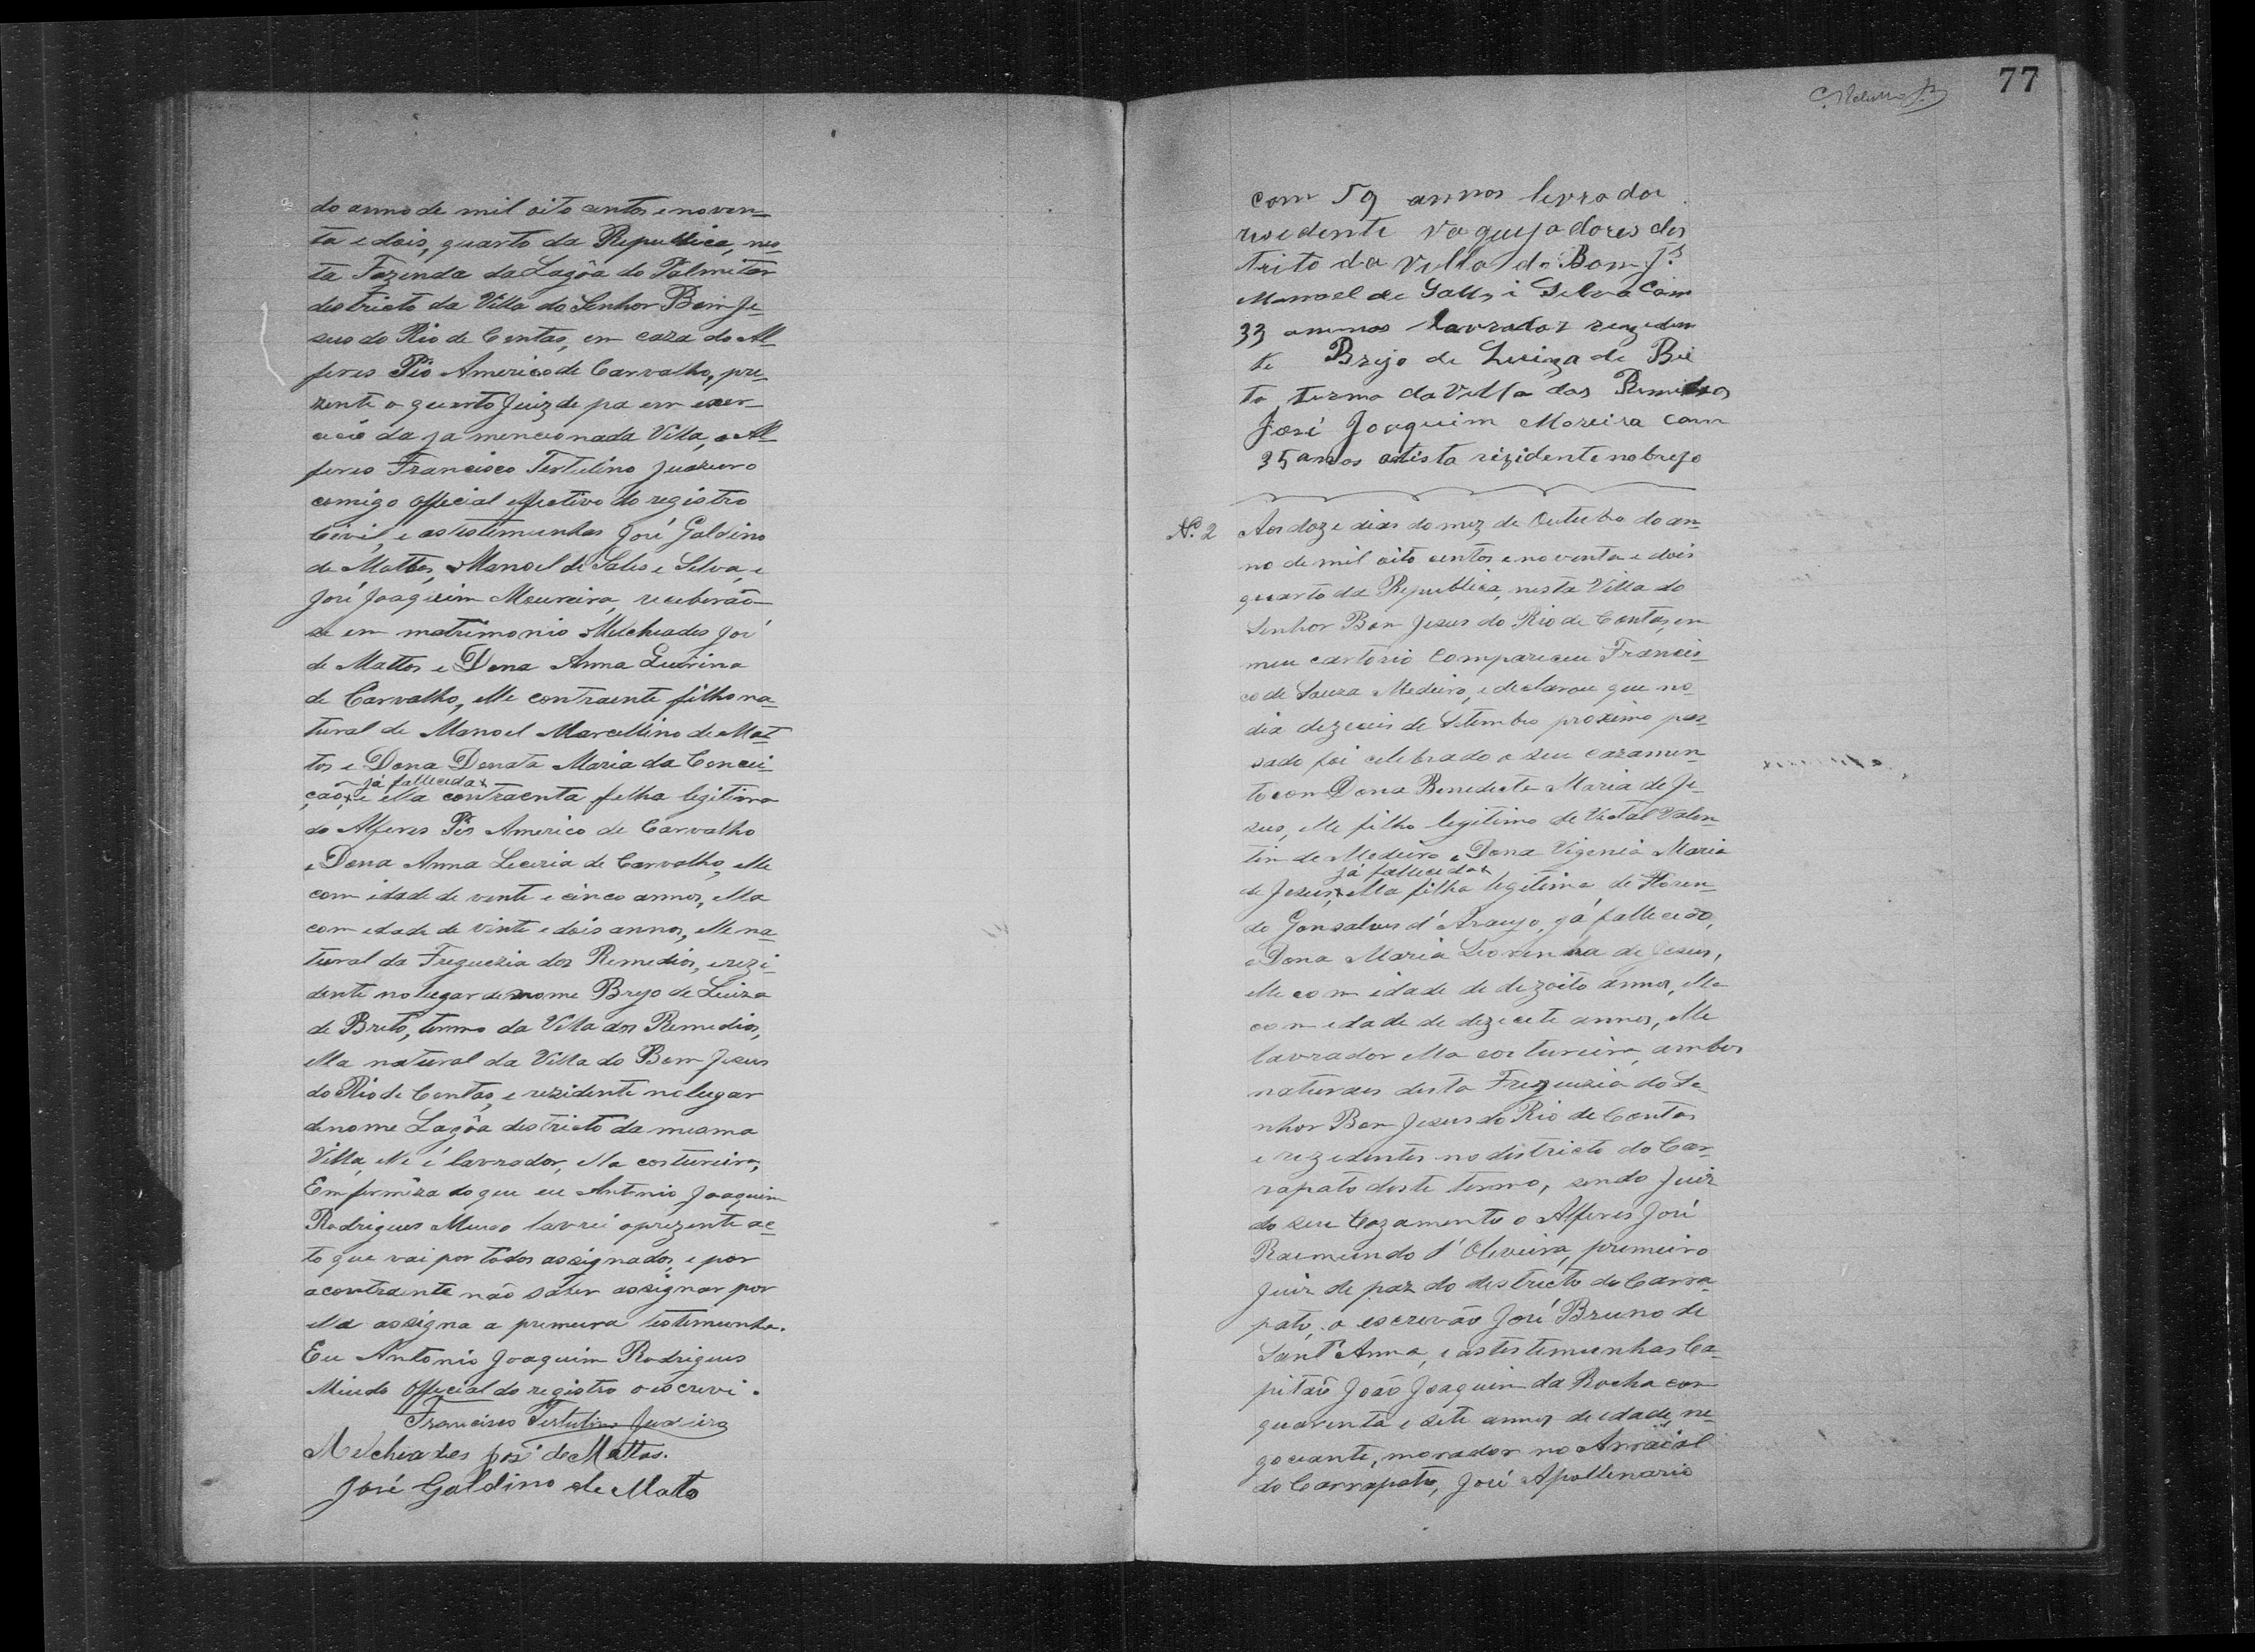 do anno de mil oito centos e noven-
ta e dois, quarto da Republica, nes-
ta Fazenda da Lagôa do Palmitar
destricto da Villa do Senhor Bom Je-
sus do Rio de Contas, em caza do Al-
feres Pio Americo de Carvalho, pre-
zente o quarto Juiz de pa em exer-
cicio da ja mencionada Villa, o Al-
feres Francisco Tertulino Juazeiro
comigo official effectivo do registro
Civil, e as testimunhas José Galdino
de Mattos, Manoel de Sales e Silva, e
José Joaquim Moureira, receberão-
se em matrimonio Melchiades José
de Mattos e Dona Anna Guirina
de Carvalho, elle contraente filho na-
tural de Manoel Marcellino de Mat-
tos e Dona Donata Maria da Concei-
já fallecida x
ção, x e ella contraenta filha legitima
do Alferes Pio Americo de Carvalho
e Dona Anna Leceria de Carvalho, elle
com idade de vente e cinco annos, ella
com edade de vinte e dois annos, elle na-
tural da Freguezia dos Remedios, e rezi-
dente no lugar de nome Brejo de Luiza
de Brito, termo da Villa dos Remedios,
ella natural da Villa do Bom Jesus
do Rio de Contas, e rezidente no lugar
de nome Lagôa destricto da mesma
Villa, elle é lavrador, ella costureira,
Em firmêza do que eu Antonio Joaquim
Rodrigues lavrei o prezente ac-
to que vai por todos assignados, e por
a contraente não saber assignar por
ella assigna a primeira testimunha.
Eu Antonio Joaquim Rodrigues
official do registro o escrevi.
Francisco Tertulino Juazeiro
Melchiades José de Mattos.
José Galdino de Mato
77
com 59 annos levrador
residente vaquejadores des
trito da Villa do Bom Js
Manoel de Salls i Silva Com
33 annos lavrador rezeden
te Brejo de Luiza de Bri
to, termo da Villa dos Remedios
José Joaquim Moreira com
35 annos artista rizidente no brejo
N. 2 Aos doze dias do mez de Outubro do an-
no de mil oito centos e noventa e dois
quarto da Republica, nesta Villa do
Senhor Bom Jesus do Rio de Contas, em
meu cartorio compareceu Francis-
co de Souza Medeiro, e declarou que no
dia dezeceis de Setembro proximo pas-
sado foi celebrado o seu cazamen-
to com Dona Benedicta Maria de Je-
sus, elle filho legitimo de Victal Valen-
tin de Medeiro e Dona Vigenia Maria
já fallecidas x
de Jesus, x ella filha legitima de Floren-
do Gonsalves d'Araujo, já fallecido,
e Dona Maria Leorinna de Jesus,
elle com idade de dezoito annos, ella
com edade de dezecete annos, elle
lavrador ella costureira, ambos
naturaes desta Freguezia do Se-
nhor Bom Jesus do Rio de Contas
e rezedentes no districto do Car-
rapato deste termo, sendo Juiz
do seu Cazamento o Alferes José
Raimundo d'Oliveira, primeiro
Juiz de paz do destricto do Carra-
pato, o escrevão José Bruno de
Sant'Anna, e as testimunhas Ca-
pitão João Joaquim da Rocha com
quarenta e sete annos de edade, ne-
gociante, morador no Arraial
do Carrapato, José Apollinario